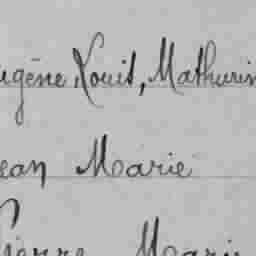 ugène, Louis, Mathurin
ean Marie
Pierre Marie